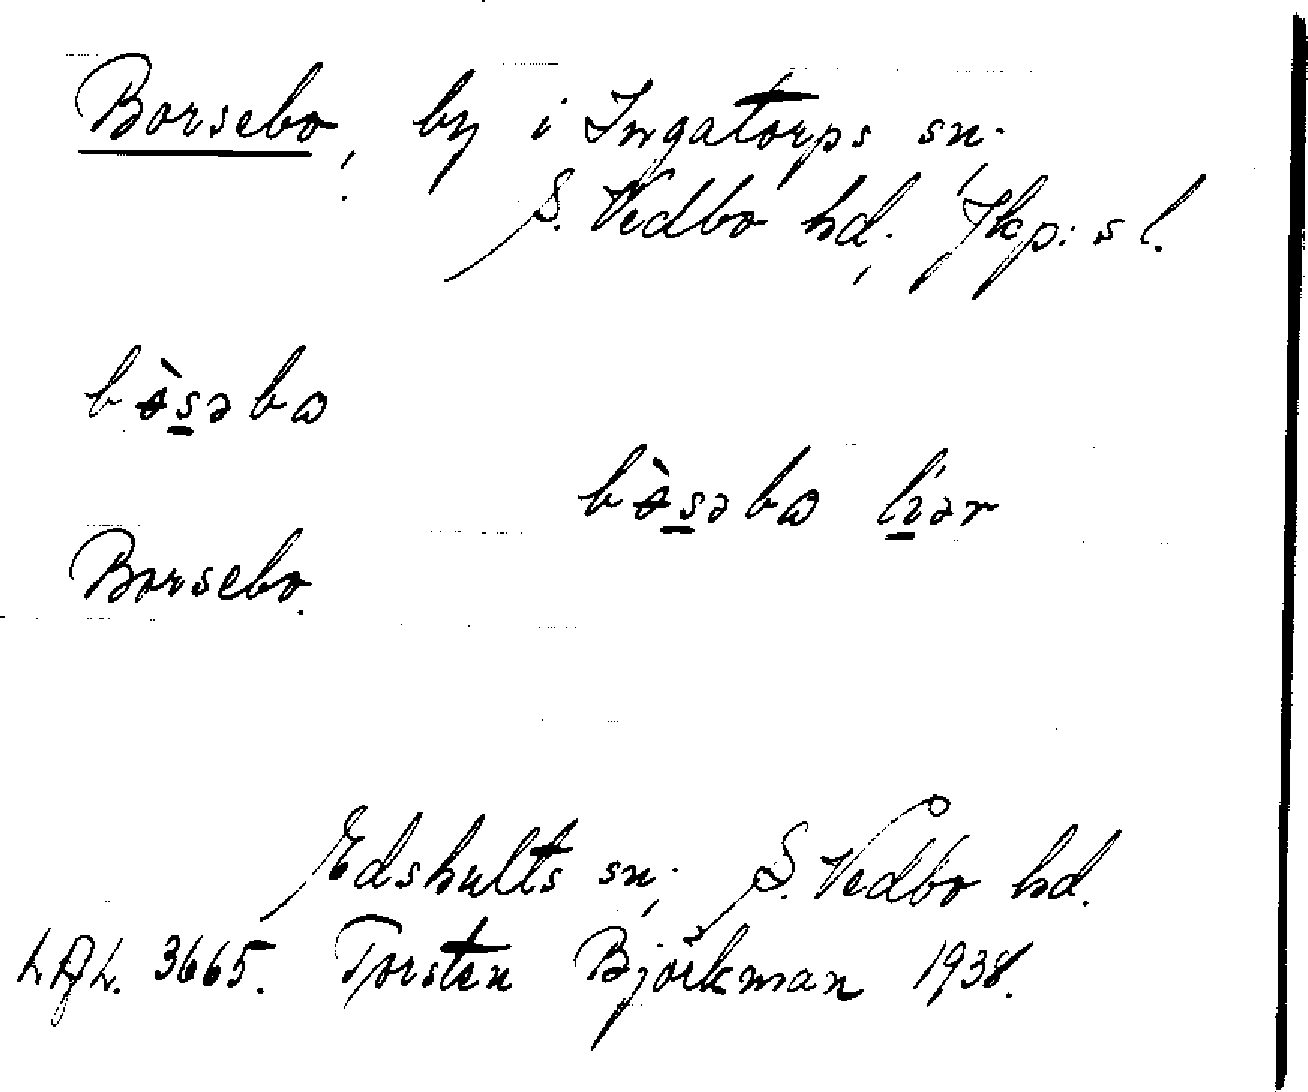 Borsebo, by i Ingatorps sn.,
S. Vedbo hd., Jkp:s l.
bòsəbω
bòsəbω líər
Borsebo.
Edshults sn., S. Vedbo hd.
3665. Torsten Björkman 1938.